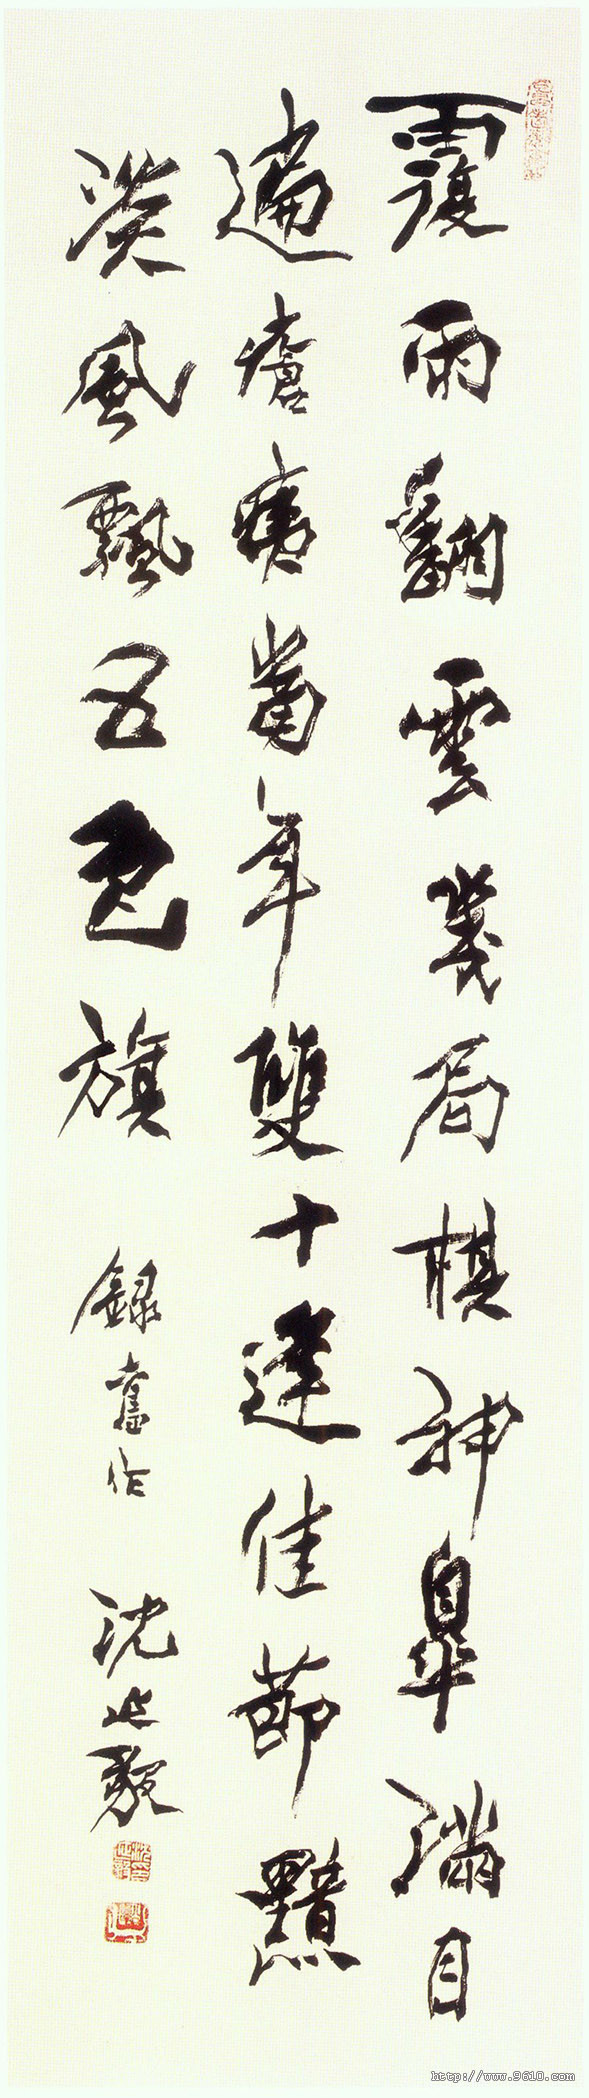 覆雨翻雲幾局棋神皋滿目
遍瘡痍當年雙十逢佳節黯
淡風飄五色旗 錄舊作 沈延毅
http://www.9610.com